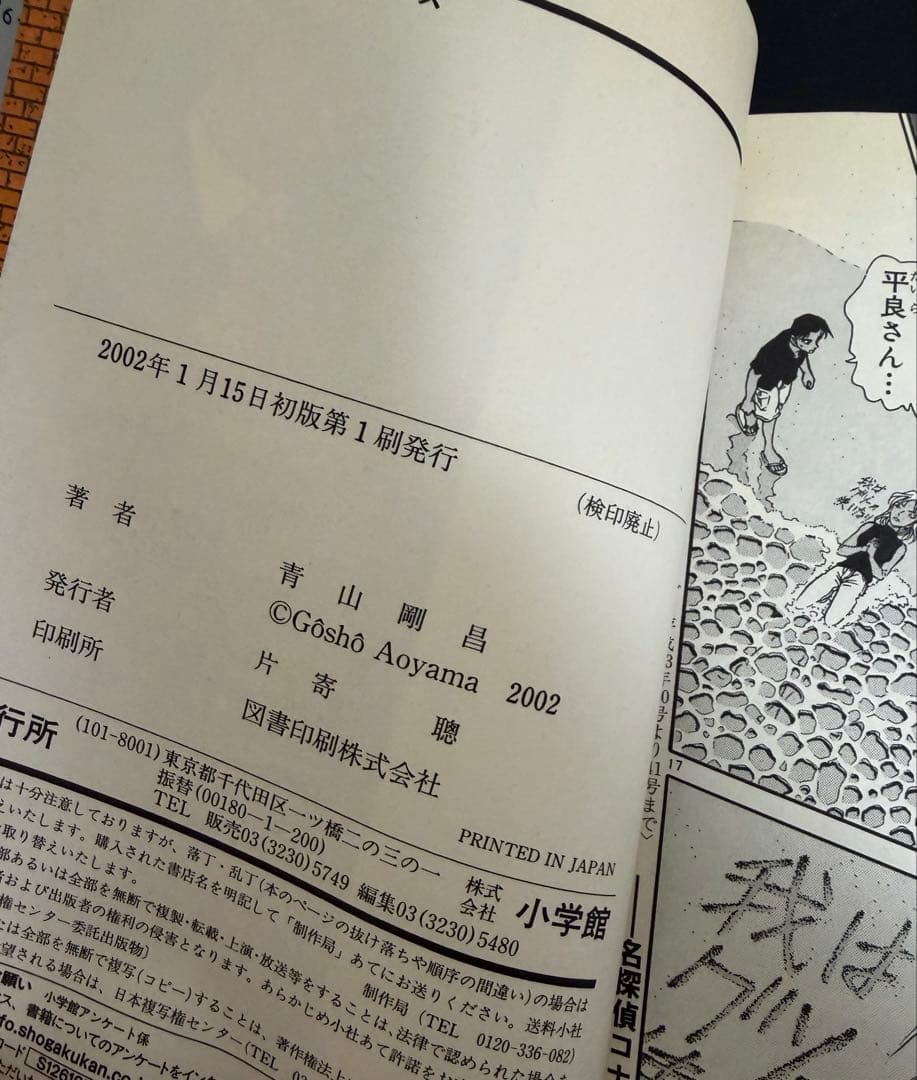 2002年1月15日初版第1刷発行
(検印廃止)
著者 青山剛昌
©Gôshô Aoyama 2002
発行者 片寄聰
印刷所 図書印刷株式会社
PRINTED IN JAPAN
行所 (101-8001)東京都千代田区一ツ橋二の三の一 株式会社 小学館
振替(00180-1-200)
TEL 販売03(3230)5749 編集03(3230)5480
は十分注意しておりますが、落丁・乱丁(本のページの抜け落ちや順序の間違い)の場合は
えいたします。購入された書店名を明記して「制作局」あてにお送りください。送料小社
取り替えいたします。 制作局(TEL 0120-336-082)
部あるいは全部を無断で複製・転載・上演・放送等をすることは、法律で認められた場合を
者および出版者の権利の侵害となります。あらかじめ小社あて許諾をお
権センター委託出版物〉
たは全部を無断で複写(コピー)することは、著作権法上
望される場合は、日本複写権センター(TEL
願い 小学館アンケート係
書籍についてのアンケートを
fo.shogakukan.co
コード S1261
号より11号まで〉
名探偵コナ
平良さん…
たいら
17
我は